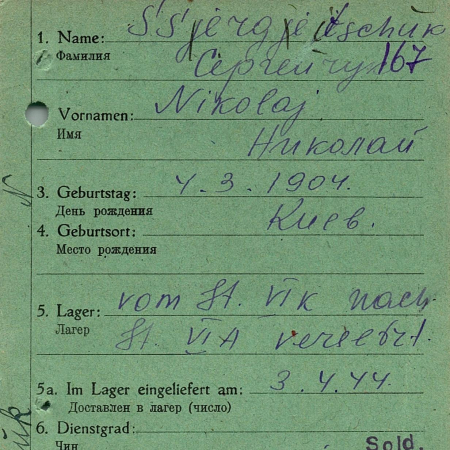 1. Name: Ssjergjejtschuk
Фамилия
Сергейчук 167
Vornamen: Nikolaj
Имя
Николай
3. Geburtstag: 4.3.1904.
День рождения
4. Geburtsort: Киев.
Место рождения
5. Lager: vom St. VI K nach
Лагер St. VI A versetzt.
5a. Im Lager eingeliefert am: 3.4.44.
Доставлен в лагер (число)
6. Dienstgrad: Sold.
Чин